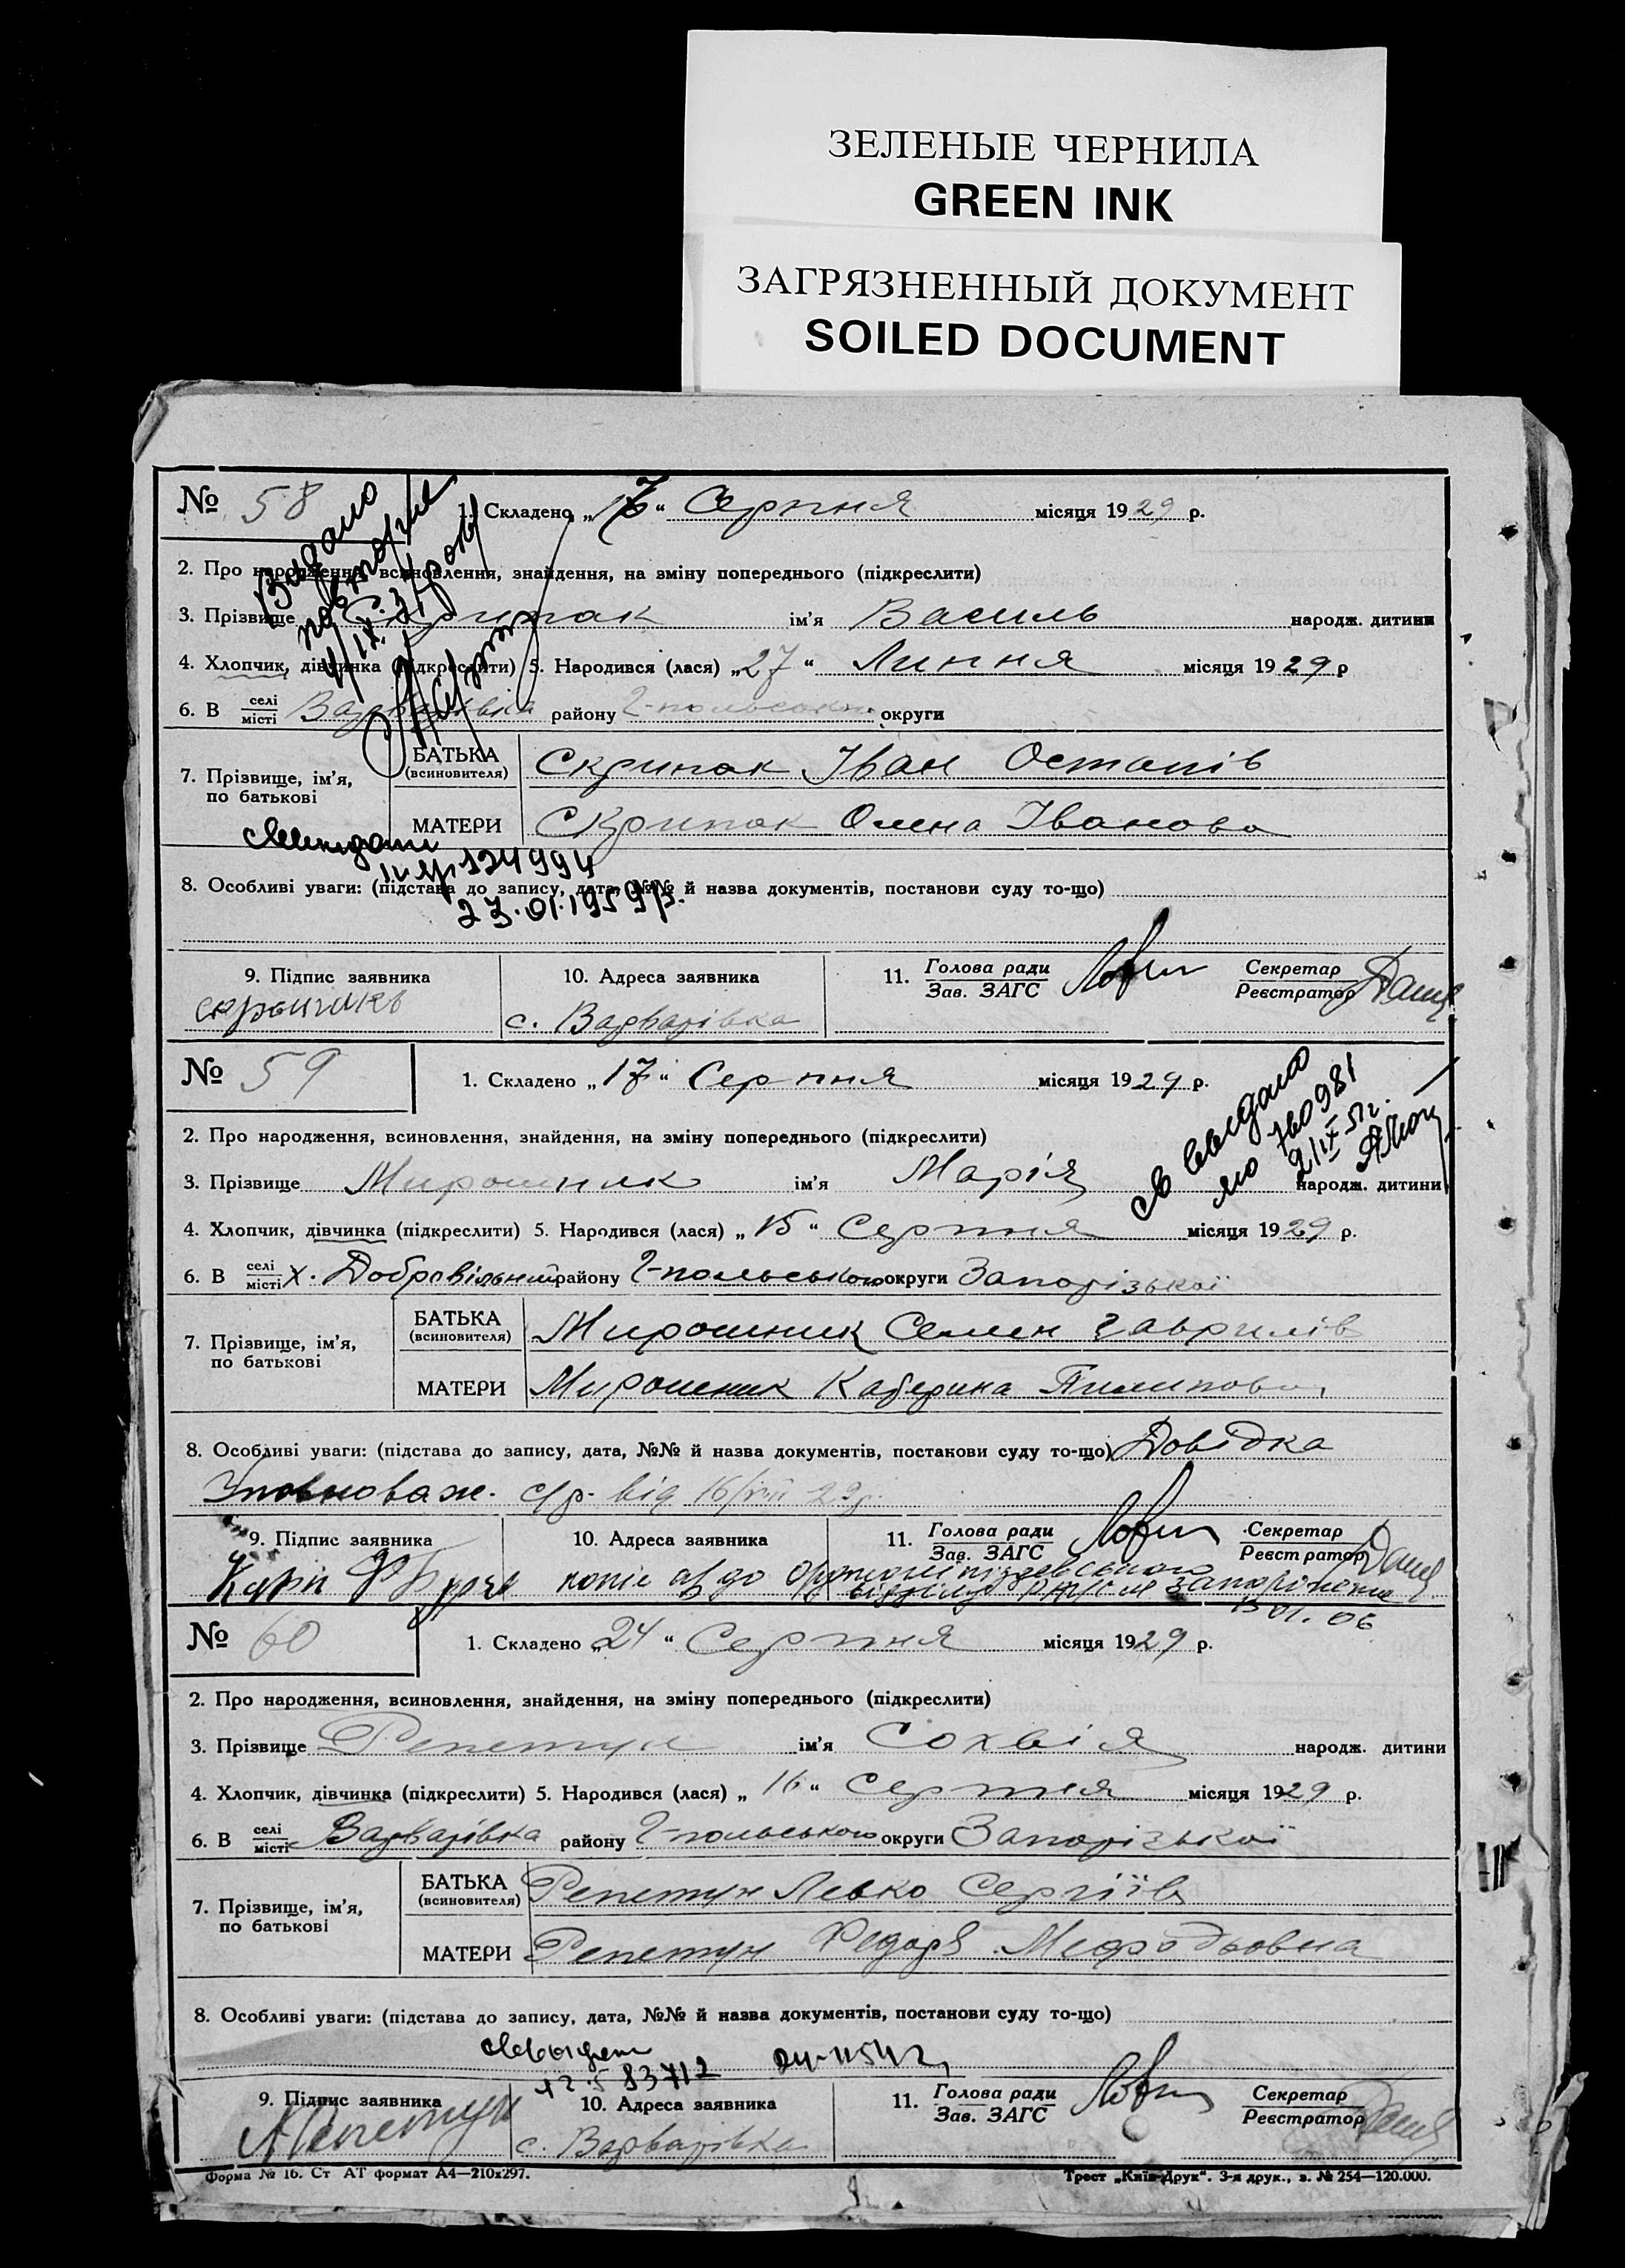 ЗЕЛЕНЫЕ ЧЕРНИЛА
GREEN INK
ЗАГРЯЗНЕННЫЙ ДОКУМЕНТ
SOILED DOCUMENT
№ 58
1. Складено „17“ Серпня місяця 1929 р.
Видано
повторне
2. Про народження, всиновлення, знайдення, на зміну попереднього (підкреслити)
3. Прізвище Скрипак ім'я Василь народж. дитини
4. Хлопчик, дівчинка (підкреслити) 5. Народився (лася) „27“ Липня місяця 1929 р
6. В селі/місті Варварівка району Г-польського округи
7. Прізвище, ім'я, по батькові
БАТЬКА (всиновителя) Скрипак Іван Остапів
МАТЕРИ Скрипак Олена Іванова
124994
8. Особливі уваги: (підстава до запису, дата, №№ й назва документів, постанови суду то-що)
23.01.1959р.
9. Підпис заявника
10. Адреса заявника
с. Варварівка
11. Голова ради/Зав. ЗАГС
Секретар/Реєстратор
№ 59
1. Складено „17“ Серпня місяця 1929 р.
760981
2. Про народження, всиновлення, знайдення, на зміну попереднього (підкреслити)
3. Прізвище Мирошник ім'я Марія народж. дитини
4. Хлопчик, дівчинка (підкреслити) 5. Народився (лася) „15“ Серпня місяця 1929 р.
6. В селі/місті х. Добровільний району Г-польського округи Запорізької
7. Прізвище, ім'я, по батькові
БАТЬКА (всиновителя) Мирошник Семен Гаврилів
МАТЕРИ Мирошник Катерина Пилипова
8. Особливі уваги: (підстава до запису, дата, №№ й назва документів, постанови суду то-що) Довідка
Уповноваж. с/р. від 16/VIII 29р.
9. Підпис заявника
10. Адреса заявника
11. Голова ради/Зав. ЗАГС
Секретар/Реєстратор
копію а/з до Орджонікідзевського
відділу
13 01. 06
№ 60
1. Складено „24“ Серпня місяця 1929 р.
2. Про народження, всиновлення, знайдення, на зміну попереднього (підкреслити)
3. Прізвище Репетун ім'я Сохвія народж. дитини
4. Хлопчик, дівчинка (підкреслити) 5. Народився (лася) „16“ Серпня місяця 1929 р.
6. В селі/місті Варварівка району Г-польського округи Запорізької
7. Прізвище, ім'я, по батькові
БАТЬКА (всиновителя) Репетун Левко Сергіїв
МАТЕРИ Репетун Федора Мефодьовна
8. Особливі уваги: (підстава до запису, дата, №№ й назва документів, постанови суду то-що)
83712
9. Підпис заявника
Репетун
10. Адреса заявника
с. Варварівка
11. Голова ради/Зав. ЗАГС
Секретар/Реєстратор
Форма № 16. Ст АТ формат А4—210х297.
Трест „Київ-Друк“. 3-я друк., з. № 254—120.000.